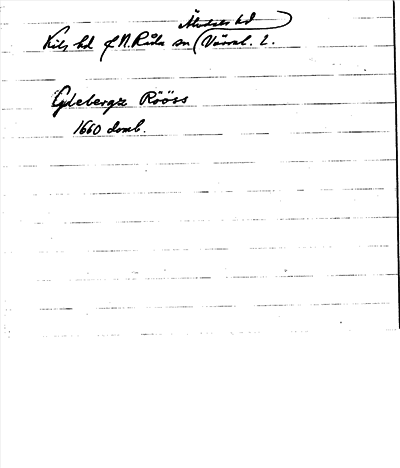 Älvdals hd
Kils hd f N. Råda sn (Värml. L.
Gilebergz Rööss
1660 domb.